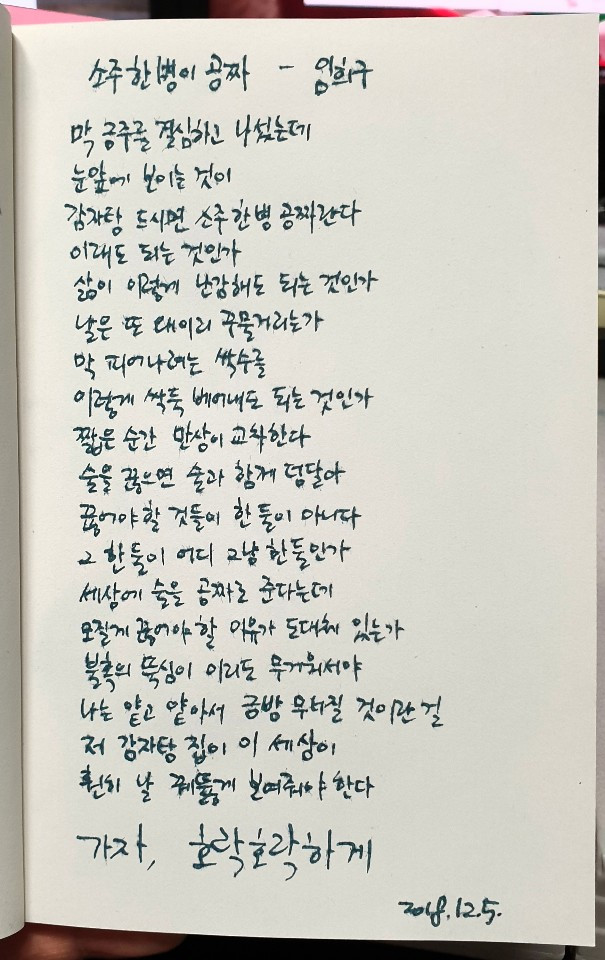 소주 한 병이 공짜 - 임희구
막 금주를 결심하고 나섰는데
눈앞에 보이는 것이
감자탕 드시면 소주 한 병 공짜란다
이래도 되는 것인가
삶이 이렇게 난감해도 되는 것인가
날은 또 왜이리 꾸물거리는가
막 피어나려는 싹수를
이렇게 싹둑 베어내도 되는 것인가
짧은 순간 만상이 교차한다
술을 끊으면 술과 함께 덩달아
끊어야 할 것들이 한 둘이 아니다
그 한 둘이 어디 그냥 한 둘인가
세상에 술을 공짜로 준다는데
모질게 끊어야 할 이유가 도대체 있는가
불혹의 뚝심이 이리도 무거워서야
나는 얕고 얕아서 금방 무너질 것이란 걸
저 감자탕 집이 이 세상이
훤히 날 꿰뚫게 보여줘야 한다
가자, 호락호락하게
2018.12.5.